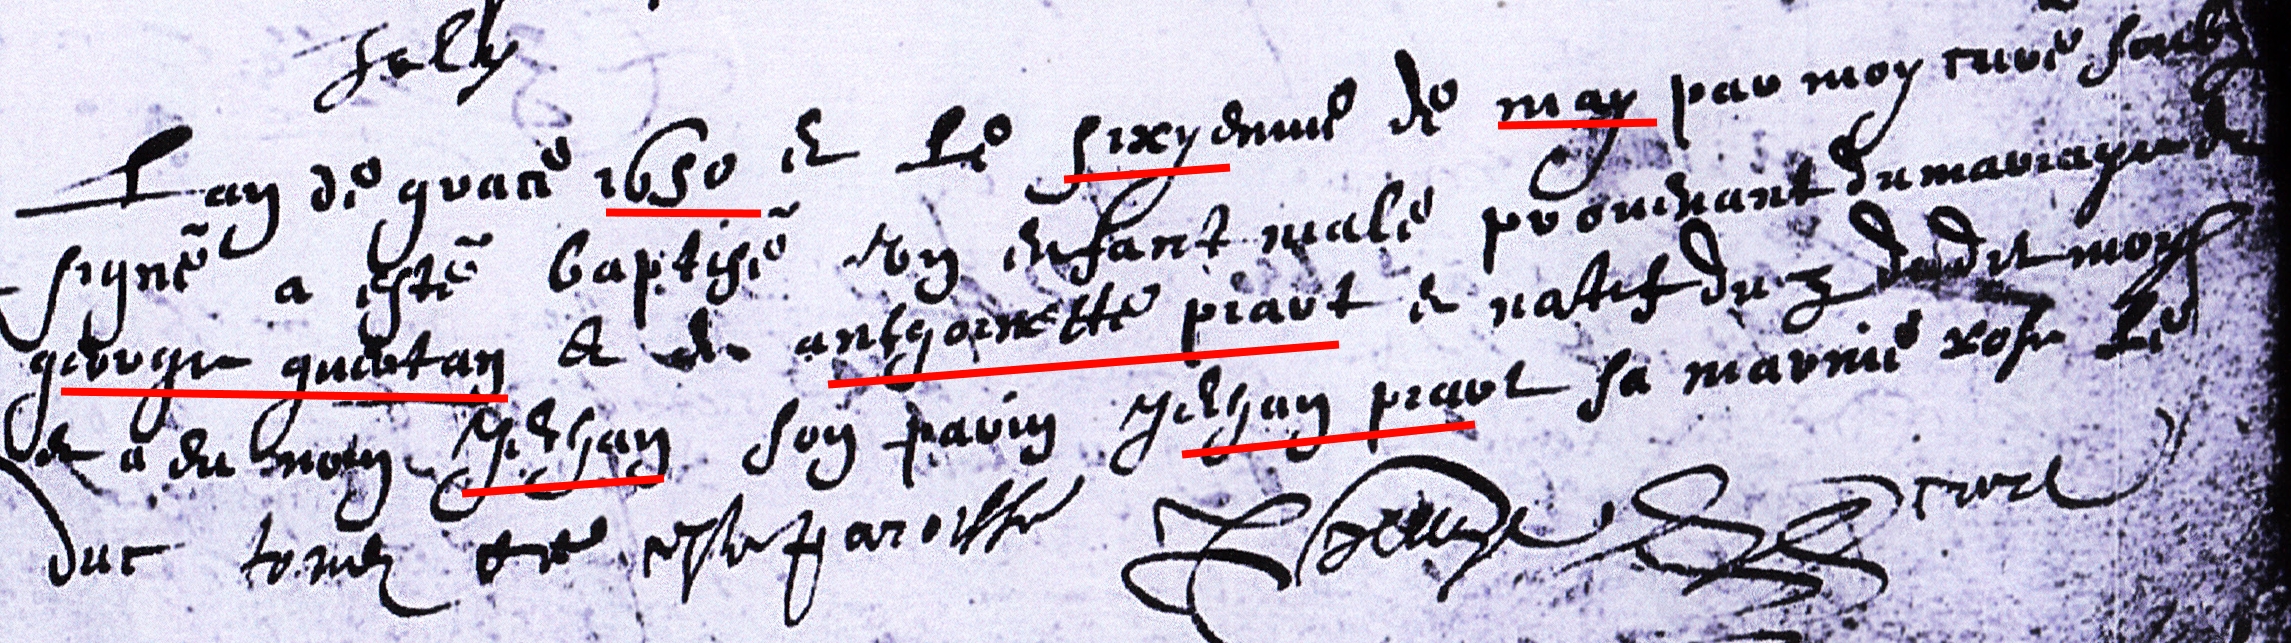 Lan de grace 1650 et le sixyeme de may par moy curé soub
signé a esté baptisé un enfant malé provenant du mariage de
george guertan et de anthoinette piart et natif du 3 dudit moys
et a eu nom Jehan son parin Jehan piart sa marine
duc tous de ceste paroisse curé